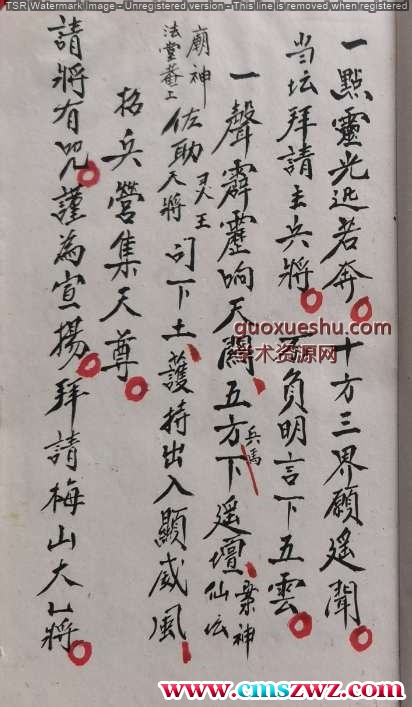 TSR Watermark Image - Unregistered version - This line is removed when registered
一點靈光迅若奔十方三界願遙聞
当坛拜請主兵將不負明言下五雲
一聲霹靂响天五方兵馬下遥壇案神仙坛
廟神法堂菴上佐助天將王司下土護持出入顯威風
招兵營集天尊
請將有咒謹為宣揚拜請梅山大將
guoxueshu.com
学术资源网
www.cmszwz.com